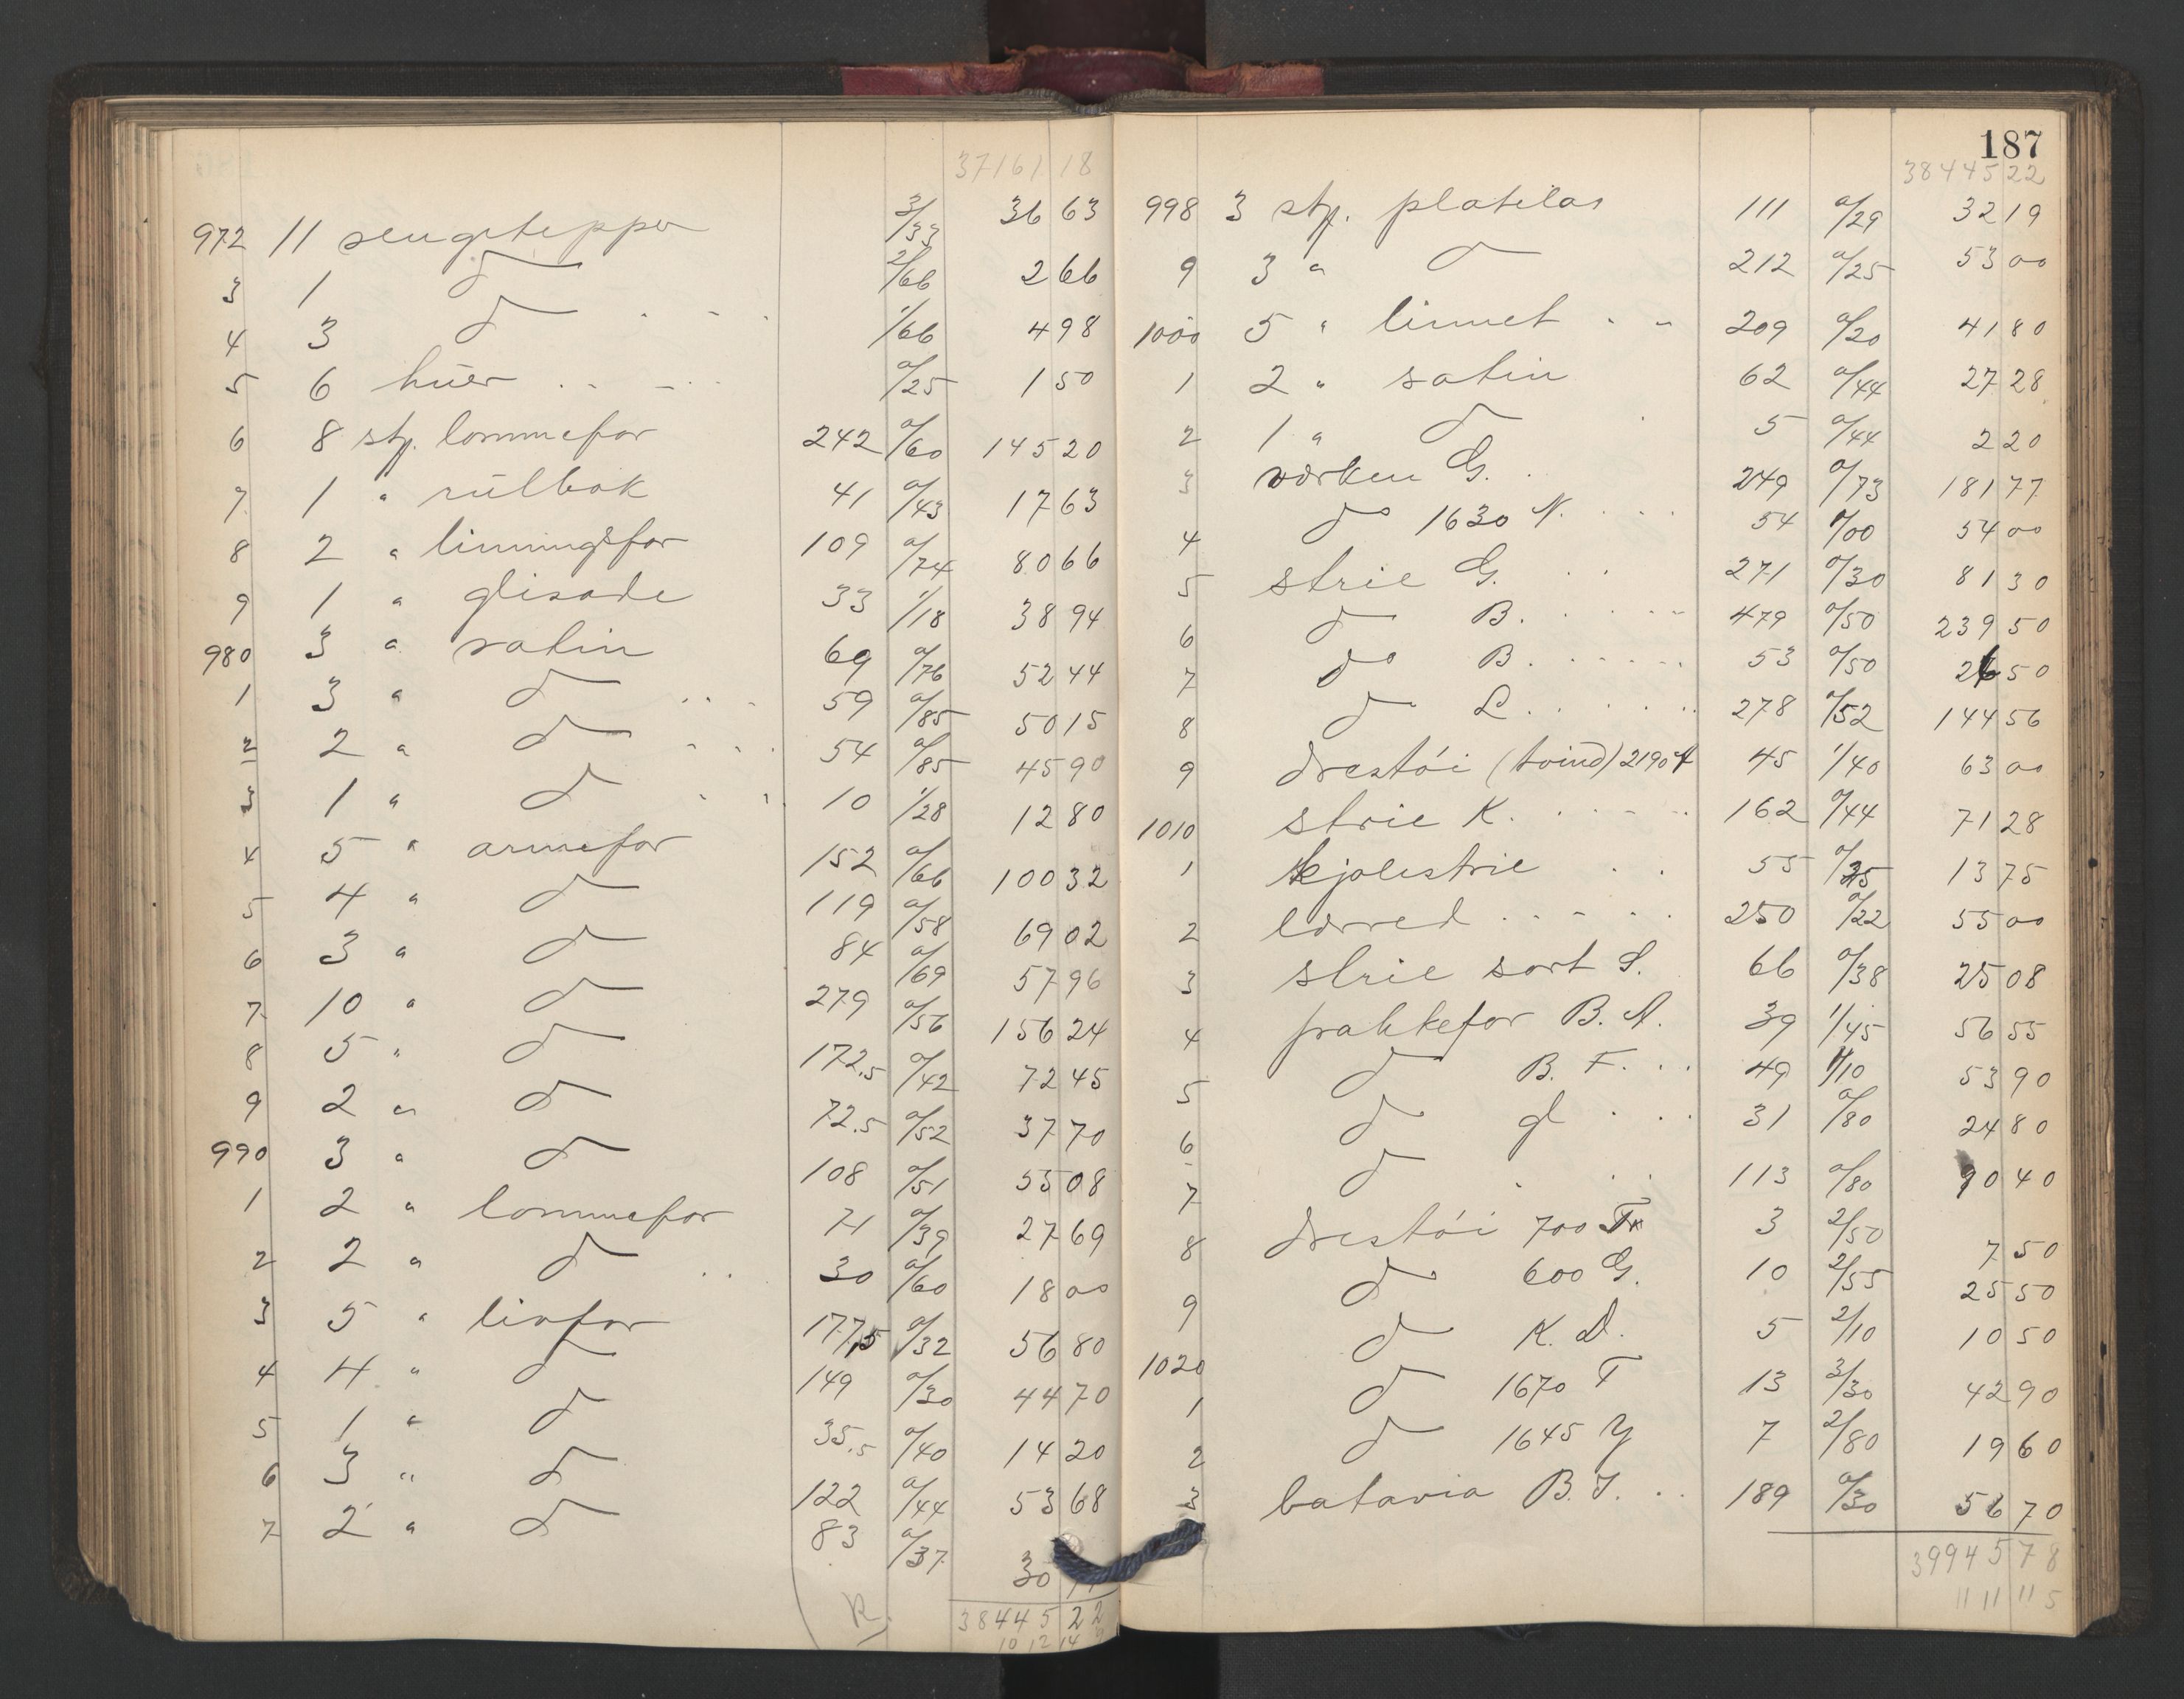 37161 18
972 11 sengetepper 3/33 36 63
3 1 do 2/66 2 66
4 3 do . - . 1/66 4 98
5 6 huer .. - .. 0/25 1 50
6 8 stp. lommefor 242 0/60 145 20
7 1 " rulbak 41 0/43 17 63
8 2 " linningsfor 109 0/74 80 66
9 1 " glisade 33 1/18 38 94
980 3 " satin 69 0/76 52 44
1 3 " do . . . 59 0/85 50 15
2 2 " do . . . 54 0/85 45 90
3 1 " do . . 10 1/28 12 80
4 5 " armefor 152 0/66 100 32
5 4 " do 119 0/58 69 02
6 3 " do 84 0/69 57 96
7 10 " do 279 0/56 156 24
8 5 " do 172.5 0/42 72 45
9 2 " do 72.5 0/52 37 70
990 3 " do 108 0/51 55 08
1 2 " lommefor 71 0/39 27 69
2 2 " do .. 30 0/60 18 00
3 5 " livfor 177,5 0/32 56 80
4 4 " do 149 0/30 44 70
5 1 " do 35.5 0/40 14 20
6 3 " do 122 0/44 53 68
7 2 " do 83 0/37 30
R. 38445 22
10 12 14
187
38445 22
998 3 stp. platilas 111 0/29 32 19
9 3 " do 212 0/25 53 00
1000 5 " linnet . - 209 0/20 41 80
1 2 " satin 62 0/44 27 28
2 1 " do . 5 0/44 2 20
3 værken G. . 249 0/73 181 77
4 do 1630 N. . . . 54 1/00 54 00
5 strie G. . . 271 0/30 81 30
6 do B. . . . . 479 0/50 239 50
7 do B. . . . . . 53 0/50 26 50
8 do L. . . . . . 278 0/52 144 56
9 drestöi (tvind) 2190 N 45 1/40 63 00
1010 strie K. . . . . 162 0/44 71 28
1 kjolestrie . . 55 0/25 13 75
2 lærred . . . . . 250 0/22 55 00
3 strie sort S. 66 0/38 25 08
4 frakkefor B. A. 39 1/45 56 55
5 do B. F. . . 49 1/10 53 90
6 do gl . . . 31 0/80 24 80
7 do . . . 113 0/80 90 40
8 drestöi 700 3 2/50 7 50
9 do 600 G. 10 2/55 25 50
1020 do K. D. 5 2/10 10 50
1 do 1670 T 13 3/30 42 90
2 do 1645 Y 7 2/80 19 60
3 batavia B. J. . . 189 0/30 56 70
39945 78
11 11 11 5